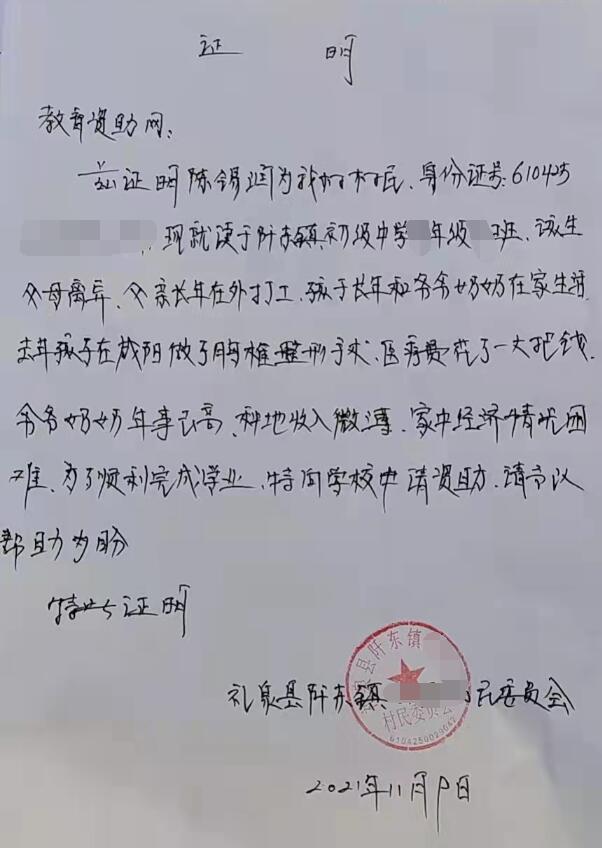 证 明
教育资助网:
兹证明陈锡润为我村村民,身份证号:610425
,现就读于阡东镇初级中学 年级 班、该生
父母离异、父亲长年在外打工、孩子长年和爷爷奶奶在家生活
去年孩子在咸阳做了胸椎整形手术、医疗费花了一大把钱.
爷爷奶奶年事已高、种地收入微薄、家中经济情况困
难、为了顺利完成学业、特向学校申请资助、请予以
帮助为盼
特此证明
礼泉县阡东镇 民委员会
县阡东镇
村民委员会
6104250029042
2021年11月 日